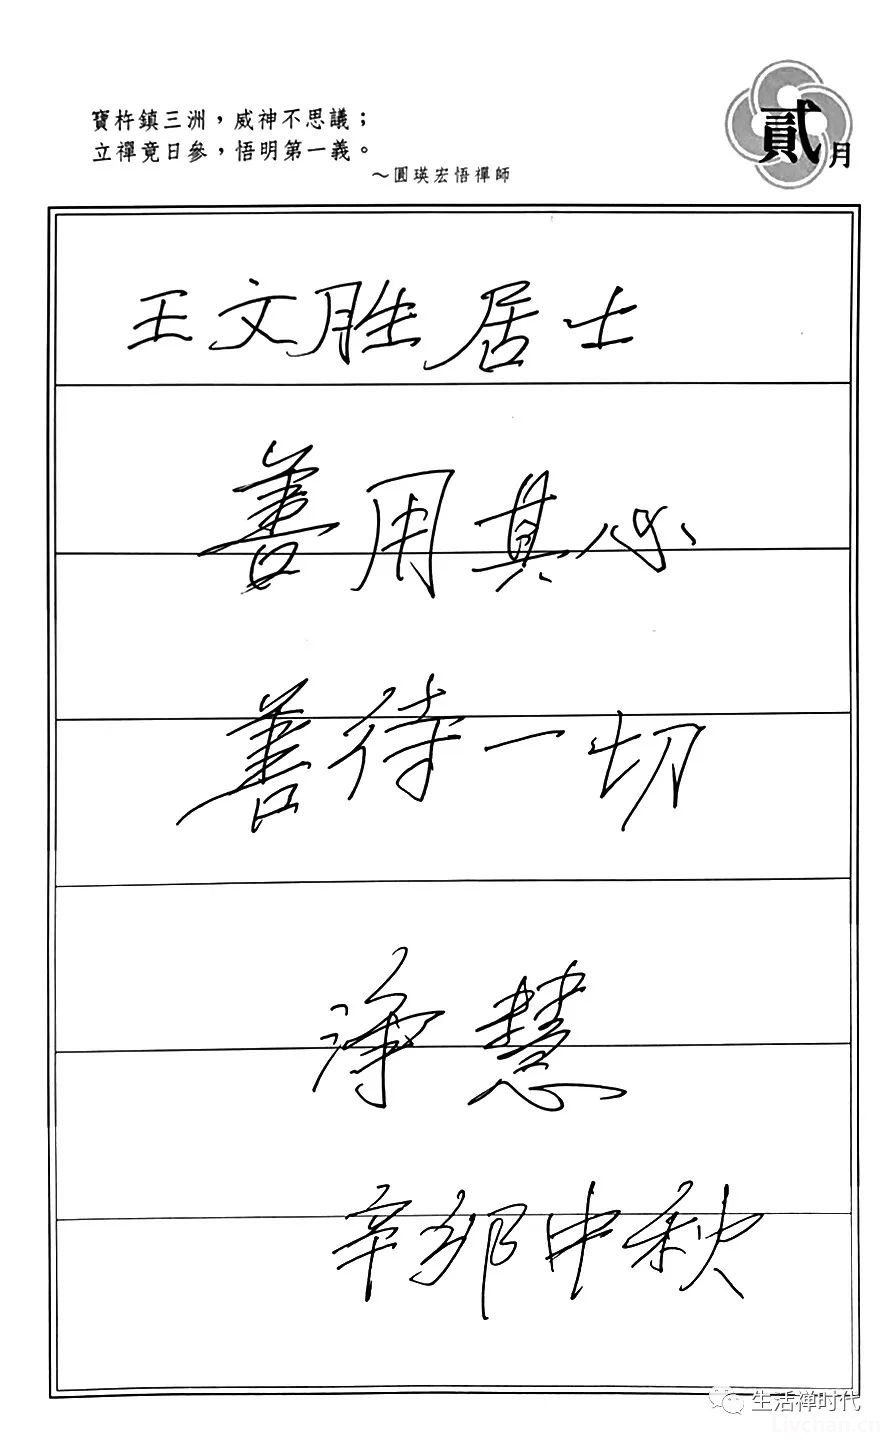 寶杵鎮三洲，威神不思議；
立禪竟日參，悟明第一義。
～圓瑛宏悟禪師
貳月
王文胜居士
善用真心
善待一切
净慧
辛卯中秋
生活禅时代
Livchan.cn